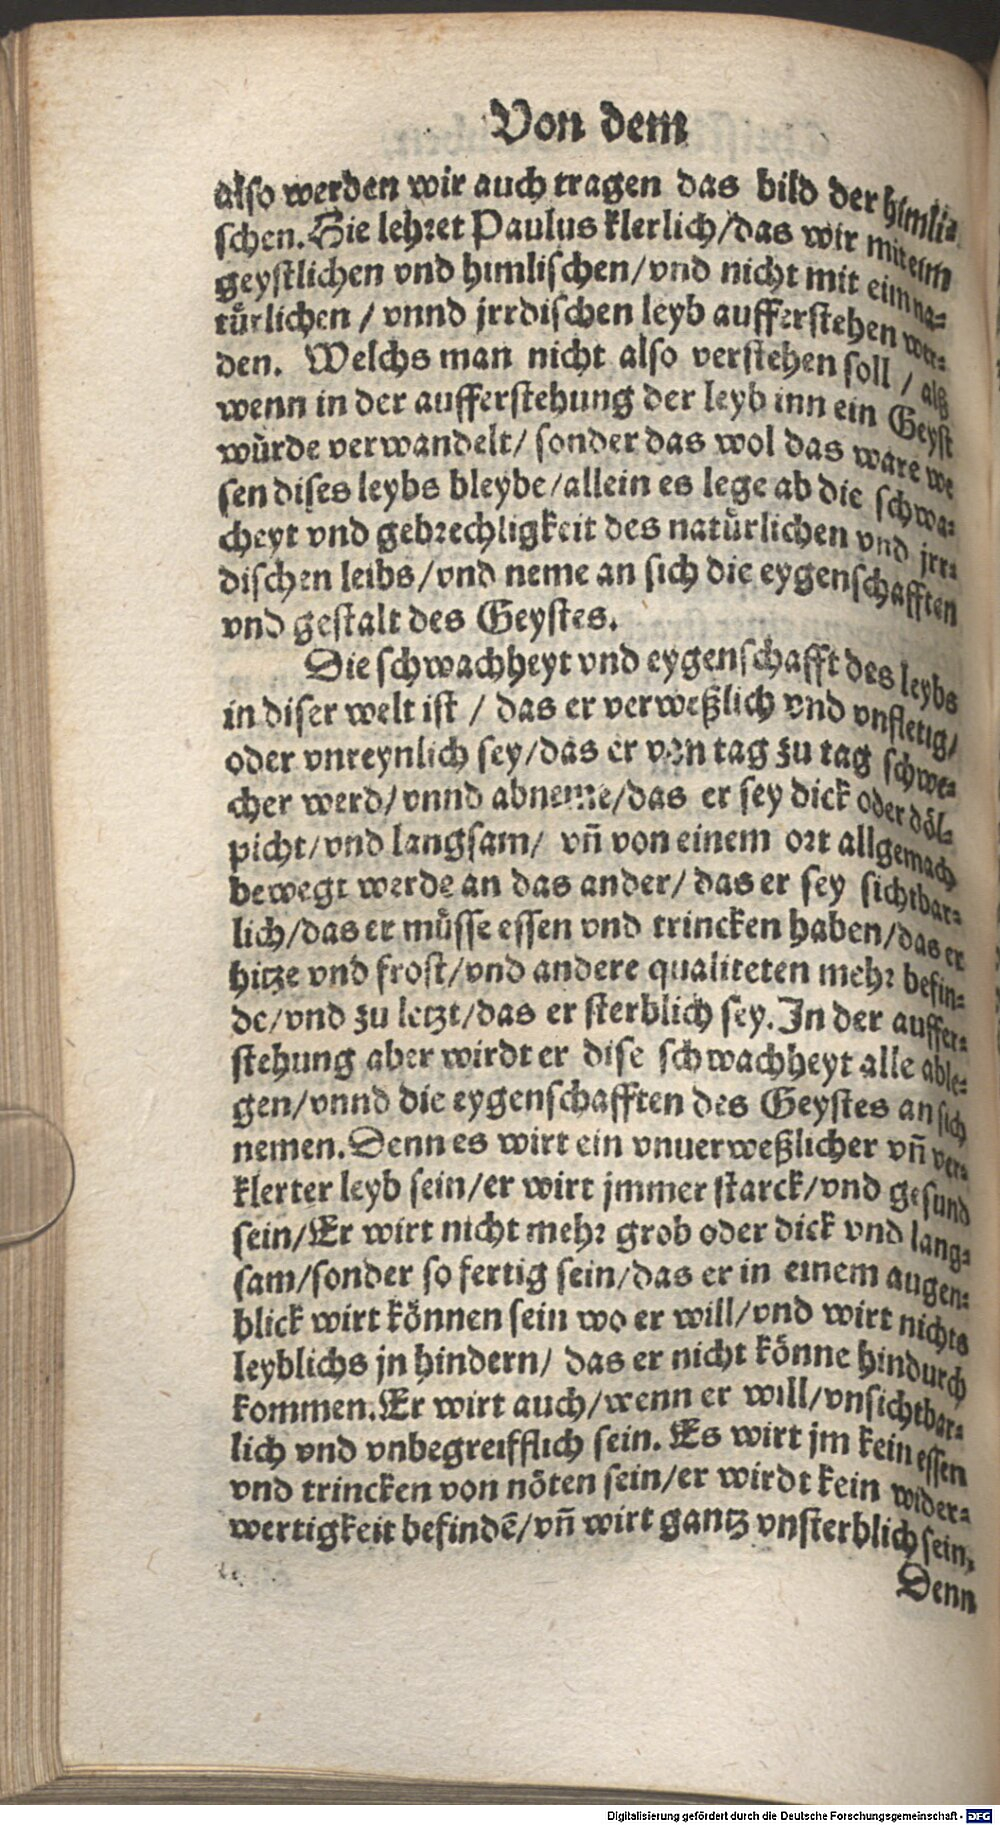 Von dem
also werden wir auch tragen das bild der himli⸗
schen. Hie lehret Paulus klerlich/das wir mit eim
geystlichen vnd himlischen/vnd nicht mit eim na⸗
türlichen / vnnd jrrdischen leyb aufferstehen wer⸗
den. Welchs man nicht also verstehen soll / alß
wenn in der aufferstehung der leyb inn ein Geyst
würde verwandelt/ sonder das wol das ware we
sen dises leybs bleybe/allein es lege ab die schwa⸗
cheyt vnd gebrechligkeit des natürlichen vnd jrr⸗
dischen leibs/vnd neme an sich die eygenschafften
vnd gestalt des Geystes.
Die schwachheyt vnd eygenschafft des leybs
in diser welt ist / das er verweßlich vnd vnfletig/
oder vnreynlich sey/das er von tag zu tag schwe⸗
cher werd/vnnd abneme/das er sey dick oder döl⸗
picht/vnd langsam/ vñ von einem ort allgemach
bewegt werde an das ander/ das er sey sichtbar⸗
lich/das er müsse essen vnd trincken haben/das er
hitze vnd frost/vnd andere qualiteten mehr befin⸗
de/vnd zu letzt/das er sterblich sey. In der auffer⸗
stehung aber wirdt er dise schwachheyt alle able⸗
gen/vnnd die eygenschafften des Geystes an sich
nemen. Denn es wirt ein vnuerweßlicher vñ ver⸗
klerter leyb sein/er wirt jmmer starck/vnd gesund
sein/Er wirt nicht mehr grob oder dick vnd lang⸗
sam/sonder so fertig sein/das er in einem augen⸗
blick wirt können sein wo er will/vnd wirt nichts
leyblichs jn hindern/ das er nicht könne hindurch
kommen. Er wirt auch/wenn er will/vnsichtbar⸗
lich vnd vnbegreifflich sein. Es wirt jm kein essen
vnd trincken von nöten sein/er wirdt kein wider⸗
wertigkeit befindẽ/vñ wirt gantz vnsterblich sein,
Denn
Digitalisierung gefördert durch die Deutsche Forschungsgemeinschaft - DFG